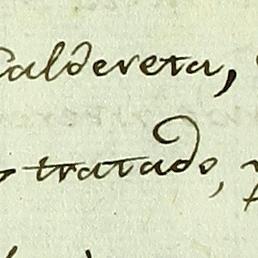 Caldereta,
tratado,